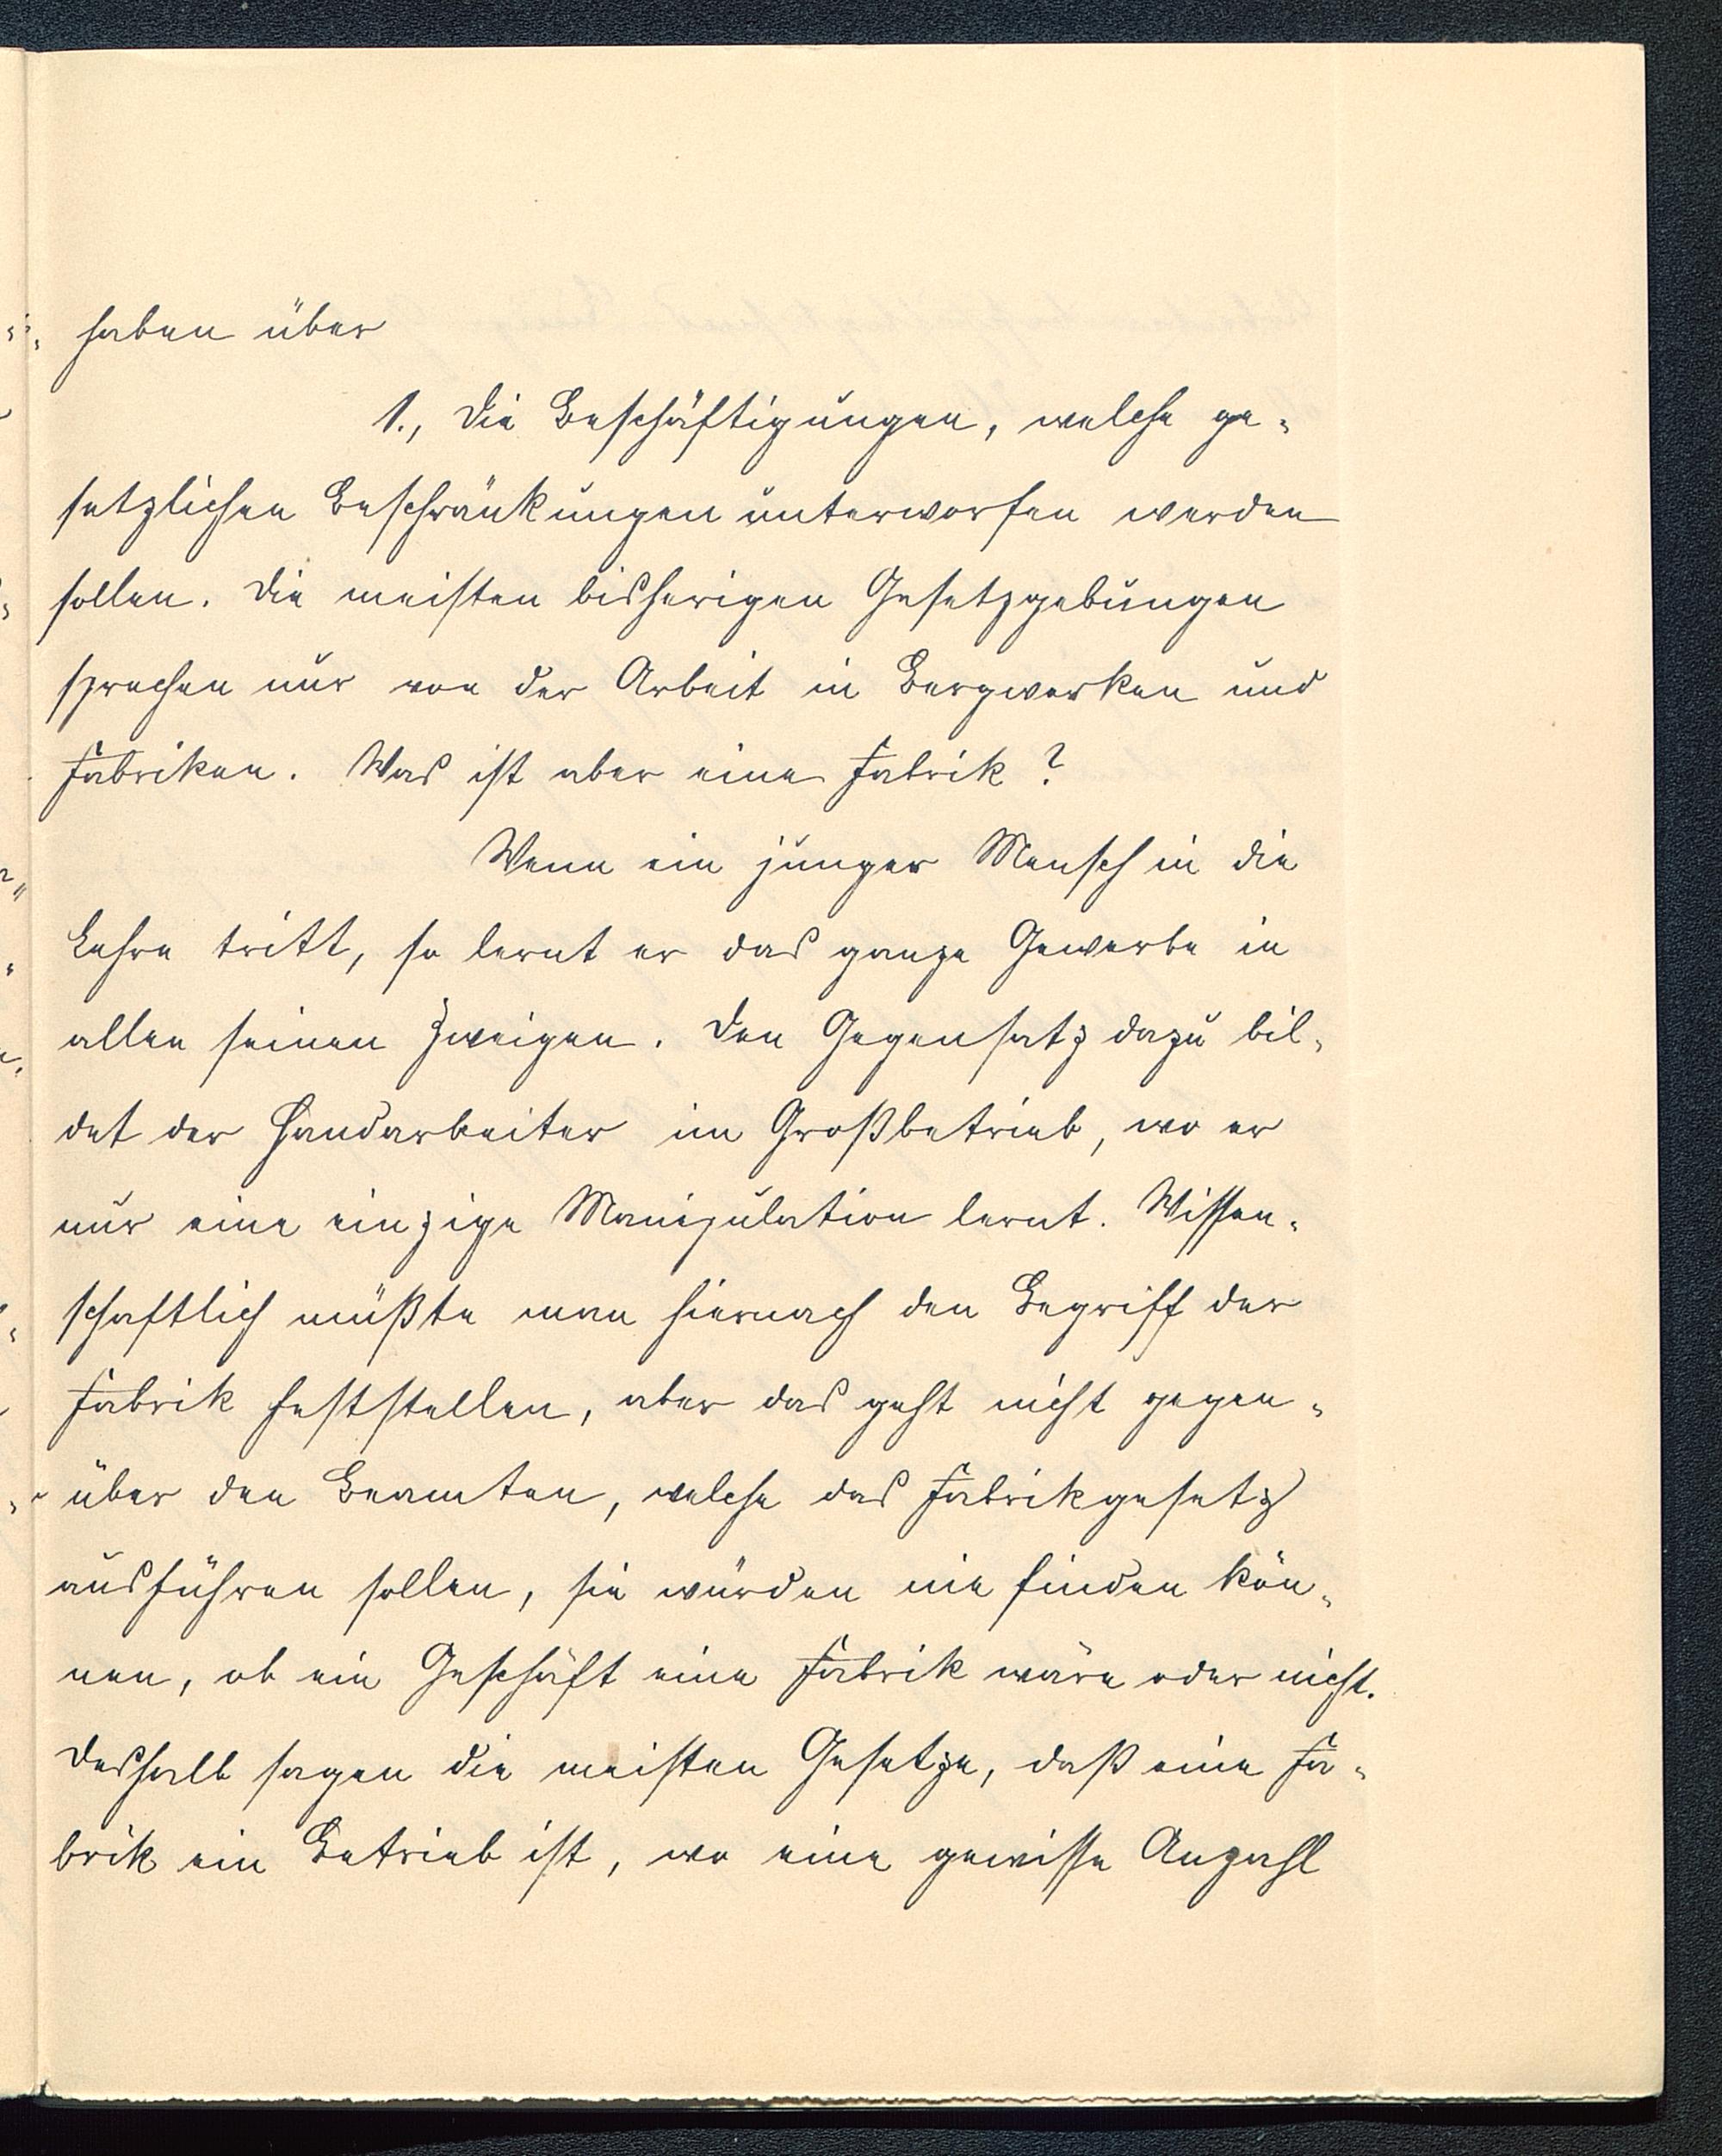 haben über
1., die Beschäftigungen, welche ge-
setzlichen Beschränkungen unterworfen werden
sollen. Die meisten bisherigen Gesetzgebungen
sprachen nur von der Arbeit in Bergwerken und
Fabriken. Was ist aber eine Fabrik?
Wenn ein junger Mensch in die
Lehre tritt, so lernt er das ganze Gewerbe in
allen seinen Zweigen. Den Gegensatz dazu bil-
det der Handarbeiter im Großbetrieb, wo er
nur eine einzige Manipulation lernt. Wissen-
schaftlich müßte man hiernach den Begriff der
Fabrik feststellen, aber das geht nicht gegen-
über den Beamten, welche das Fabrikgesetz
ausführen sollen, sie würden nie finden kön-
nen, ob ein Geschäft eine Fabrik wäre oder nicht.
Deshalb sagen die meisten Gesetze, daß eine Fa-
brik ein Betrieb ist, wo eine gewisse Anzahl